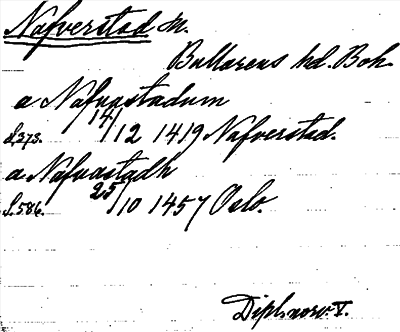 Nafverstad sn.
Bullarens hd. Boh.
a Nafuastadum
s. 373. 14/12 1419 Nafverstad.
a Nafuastadh
s. 586. 25/10 1457 Oslo.
Dipl. norv. V.